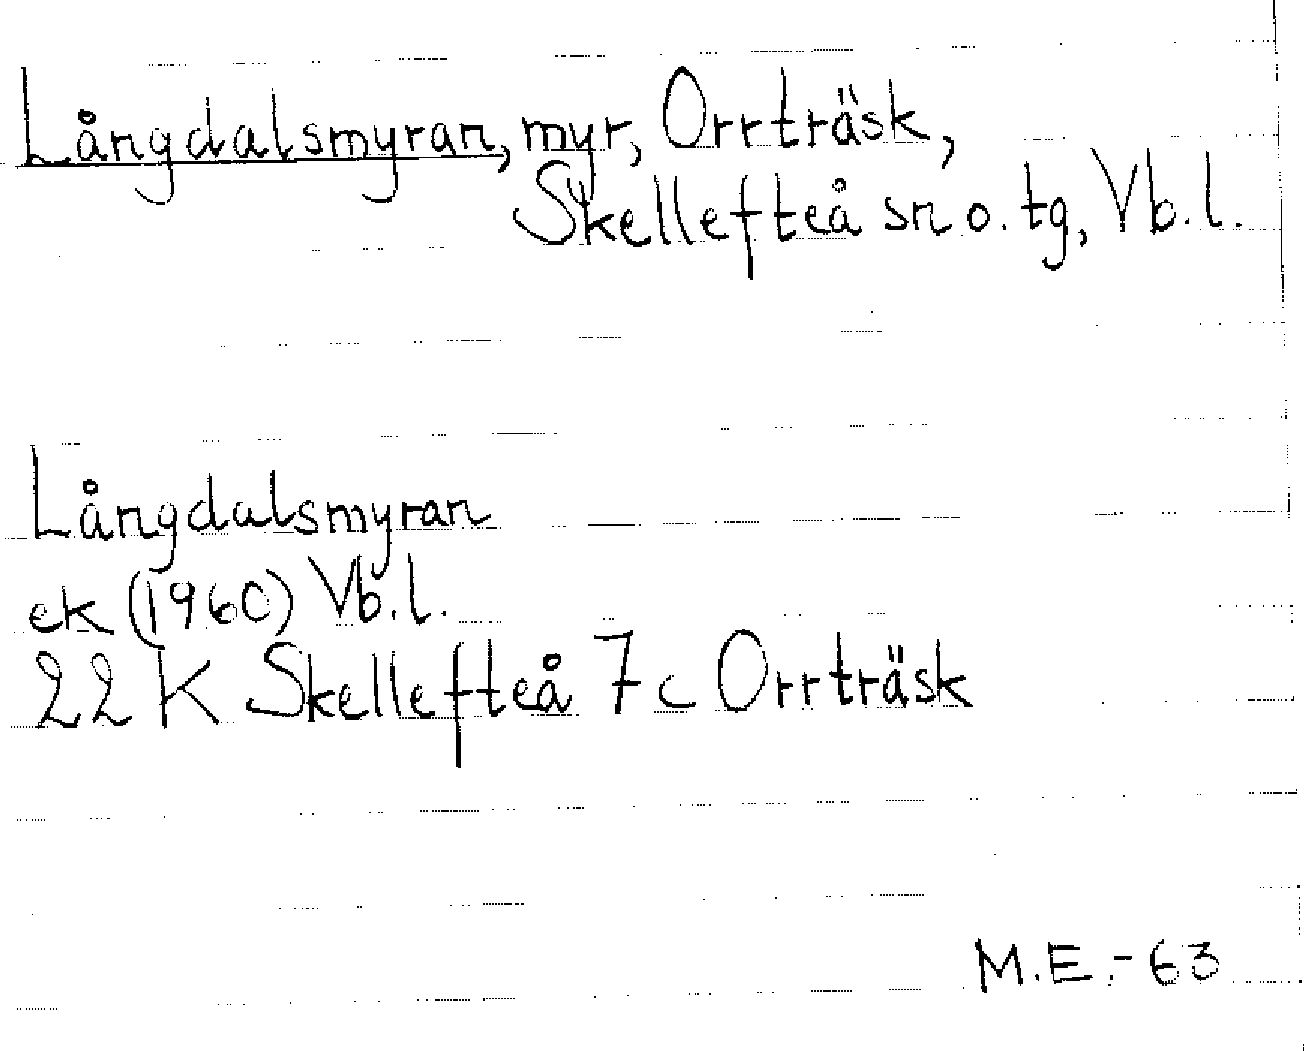 Långdalsmyran, myr, Orrträsk,
Skellefteå sn o. tg, Vb.l.
Långdalsmyran
ek (1960) Vb.l.
22 K Skellefteå 7c Orrträsk
M.E.-63